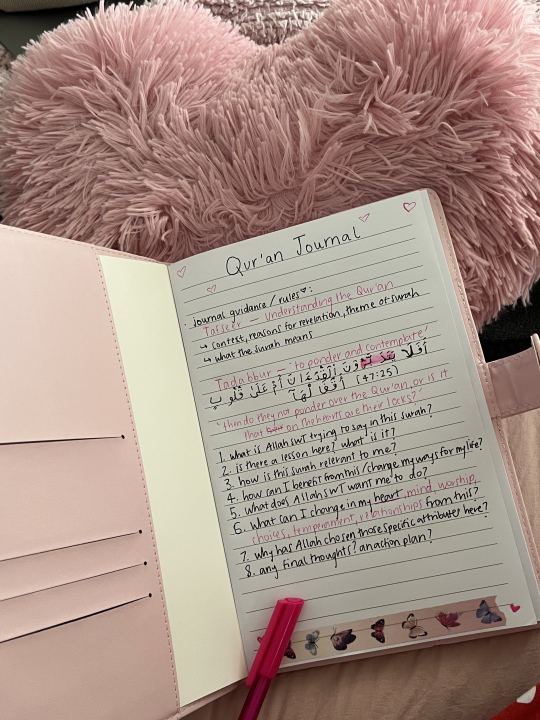 Qur'an Journal
Journal guidance / rules:
Tafseer = Understanding the Qur'an
↳ context, reasons for revelation, theme of surah
↳ what the surah means
Tadabbur = 'to ponder and contemplate'
أَفَلَا يَتَدَبَّرُونَ الْقُرْءَانَ أَمْ عَلَىٰ قُلُوبٍ
أَقْفَالُهَآ (47:25)
'then do they not ponder over the Qur'an, or is it
that on the hearts are their locks?'
1. what is Allah SWT trying to say in this surah?
2. is there a lesson here? what is it?
3. how is this surah relevant to me?
4. how can I benefit from this / change my ways for my life?
5. what does Allah SWT want me to do?
6. What can I change in my heart, mind, worship,
choices, temperament, relationships from this?
7. why has Allah chosen those specific attributes here?
8. any final thoughts? an action plan?